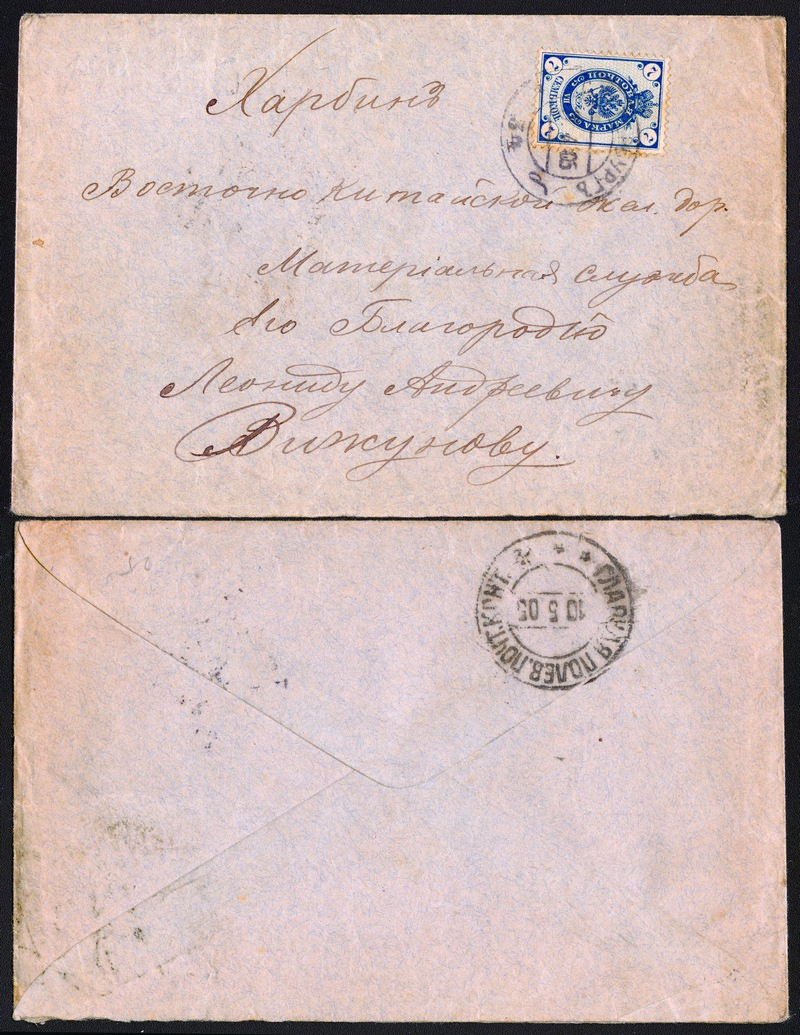 Харбинъ
Восточно Китайской жел. дор.
Матеріальная служба
Его Благородію
Леониду Андреевичу
Вижунову.
ПОЧТОВАЯ МАРКА
СЕМЬ КОП.
7 7 7 7
УРГЪ
ГЛАВНАЯ ПОЛЕВ. ПОЧТ. КОНТ.
10 5 05